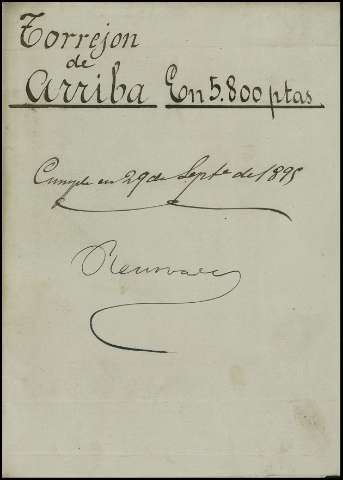 Torrejon
de
Arriba En 5.800 ptas.
Cumple en 29 de Septe de 1895